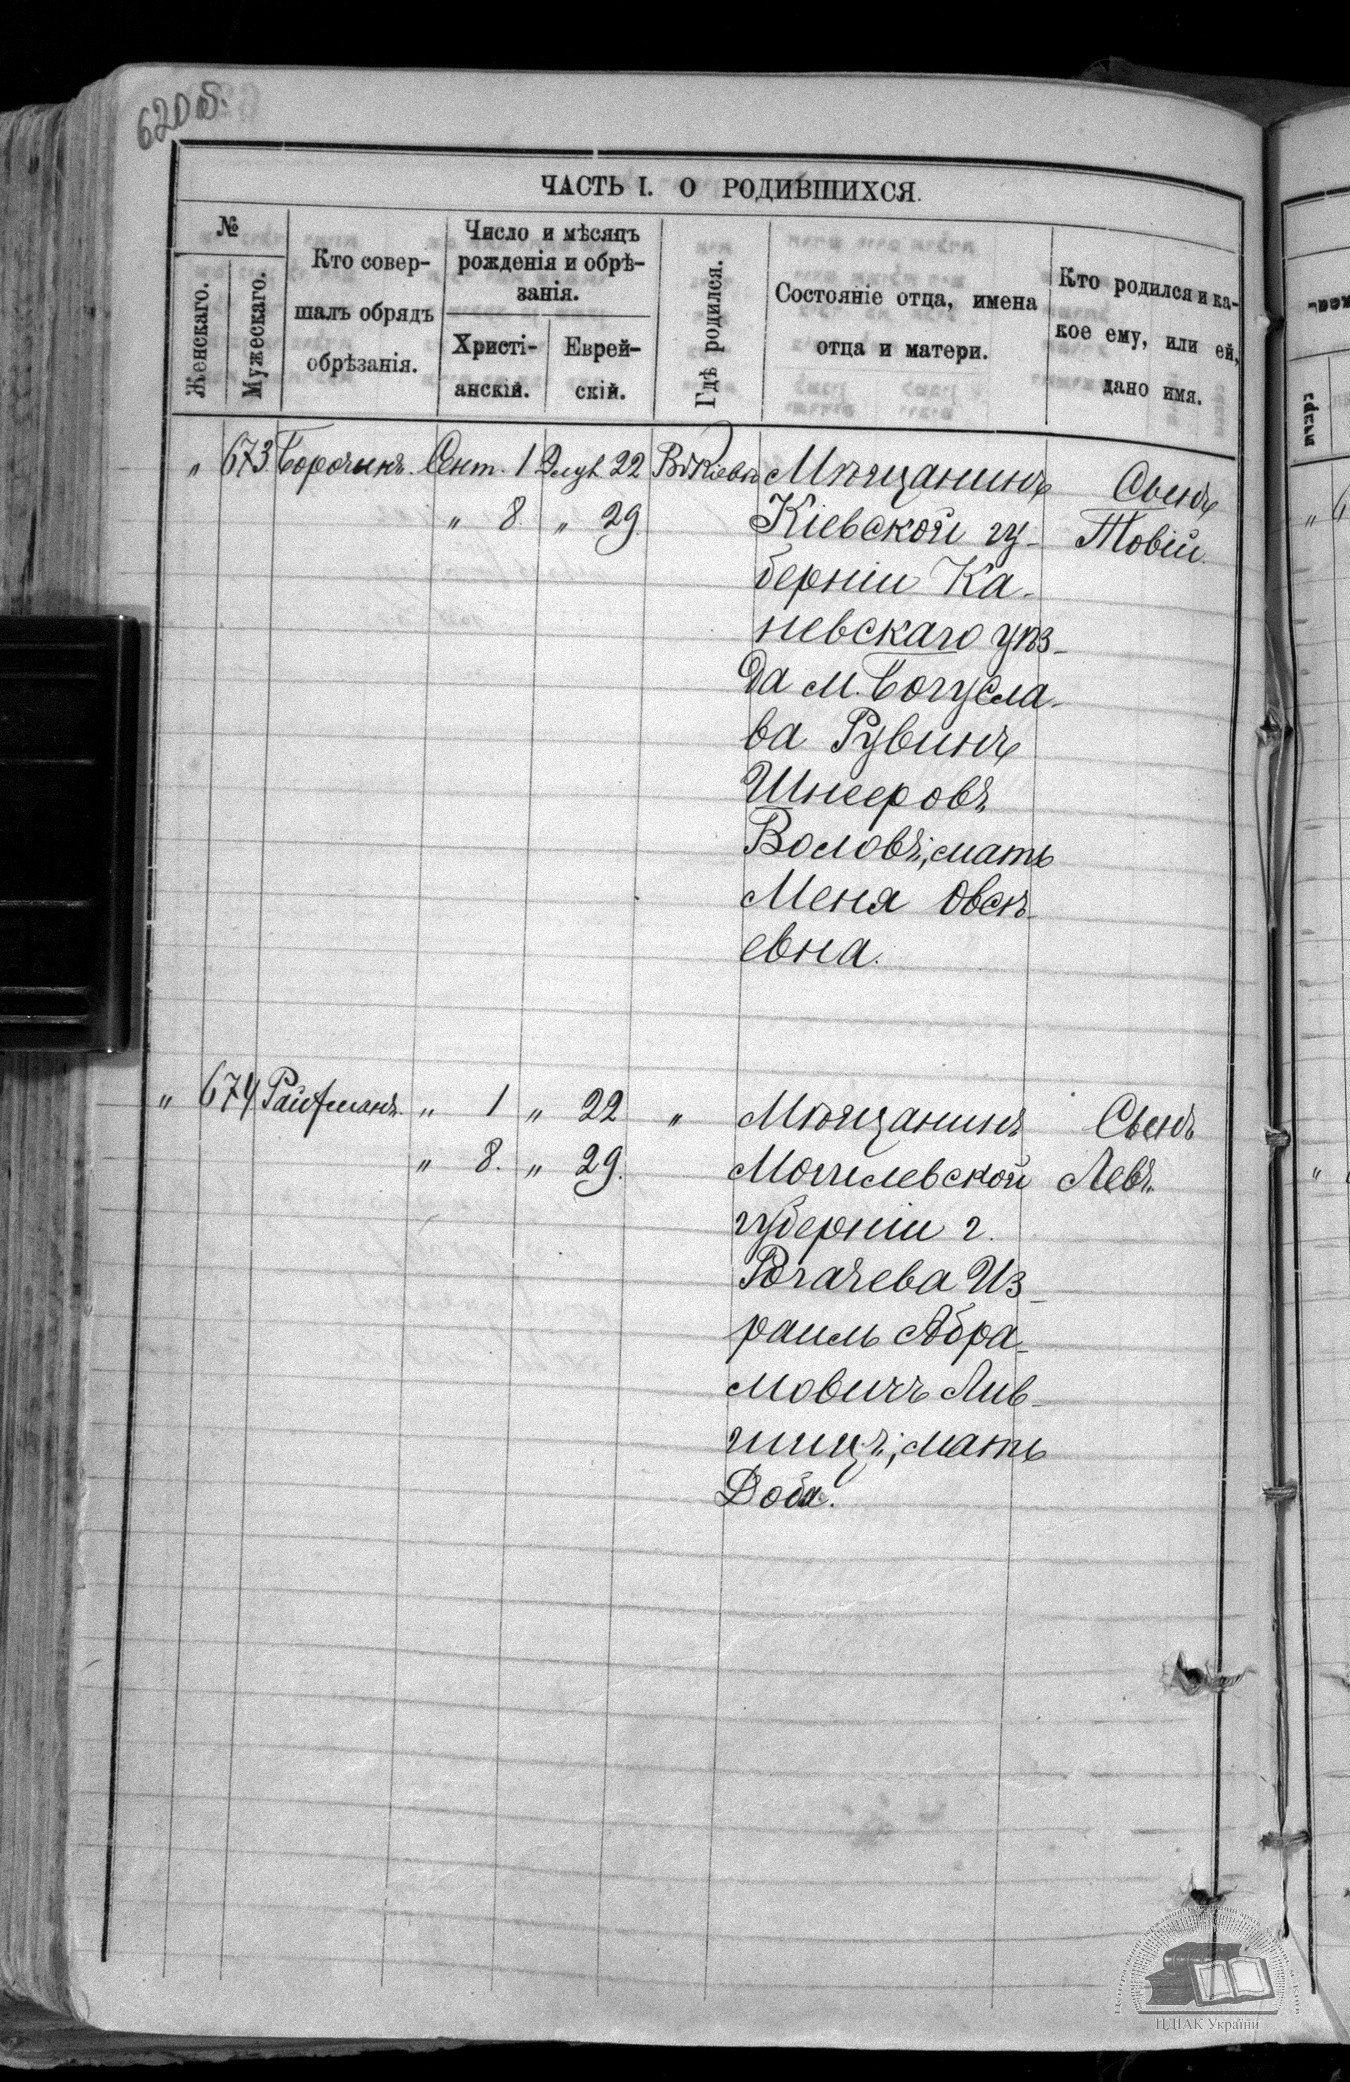 620об.
ЧАСТЬ I. О РОДИВШИХСЯ.
№
Женскаго.
Мужескаго.
Кто совер-
шалъ обрядъ
обрѣзанія.
Число и мѣсяцъ
рожденія и обрѣ-
занія.
Христі-
анскій.
Еврей-
скій.
Гдѣ родился.
Состояніе отца, имена
отца и матери.
Кто родился и ка-
кое ему, или ей,
дано имя.
" 673 Сент. 1 Элулъ 22 Въ Кіевѣ Мѣщанинъ Сынъ
" 8. " 29. Кіевской гу- Товій.
берніи Ка-
невскаго уѣз-
да м. Богусла-
ва Рувинъ
Шнееровъ
Воловъ; мать
Меня Овсѣ-
евна.
" 674 Райтманъ. " 1 " 22 " Мѣщанинъ Сынъ
" 8. " 29. Могилевской Левъ.
губерніи г.
Рогачева Из-
раиль Абра-
мовичъ Лив-
шицъ; мать
Доба.
ЦДІАК України